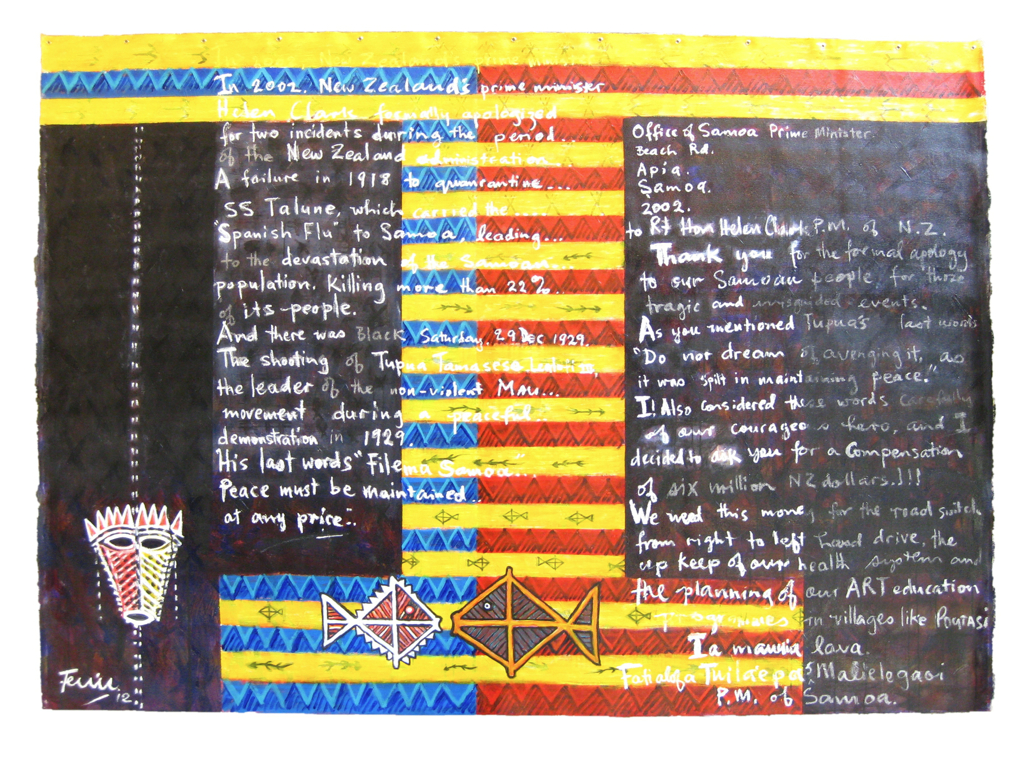 In 2002. New Zealand's prime minister
Helen Clark formally apologized
for two incidents during the period...
of the New Zealand administration...
A failure in 1918 to quarantine...
SS Talune, which carried the....
"Spanish Flu" to Samoa leading...
to the devastation of the Samoan...
population. Killing more than 22%...
of its people.
And there was Black Saturday.. 29 Dec 1929.
The shooting of Tupua Tamasese Lealofi III,
the leader of the non-violent Mau...
movement during a peaceful..
demonstration in 1929.
His last words "Filemu Samoa"...
Peace must be maintained..
at any price:.
Office of Samoa Prime Minister.
Beach Rd.
Apia.
Samoa.
2002.
to Rt Hon Helen Clark P.M. of N.Z.
Thank you for the formal apology
to our Samoan people for those
tragic and misguided events.
As you mentioned Tupua's last words
"Do not dream of avenging it, as
it was spilt in maintaining peace."
I! Also considered these words carefully
of our courageous hero, and I
decided to ask you for a Compensation
of six million NZ dollars.!!!
We need this money for the road switch
from right to left hand drive, the
up keep of our health system and
the planning of our ART education
programmes in villages like Poutasi
Ia manuia lava.
Fatialofa Tuilaepa S Malielegaoi
P.M. of Samoa.
12.